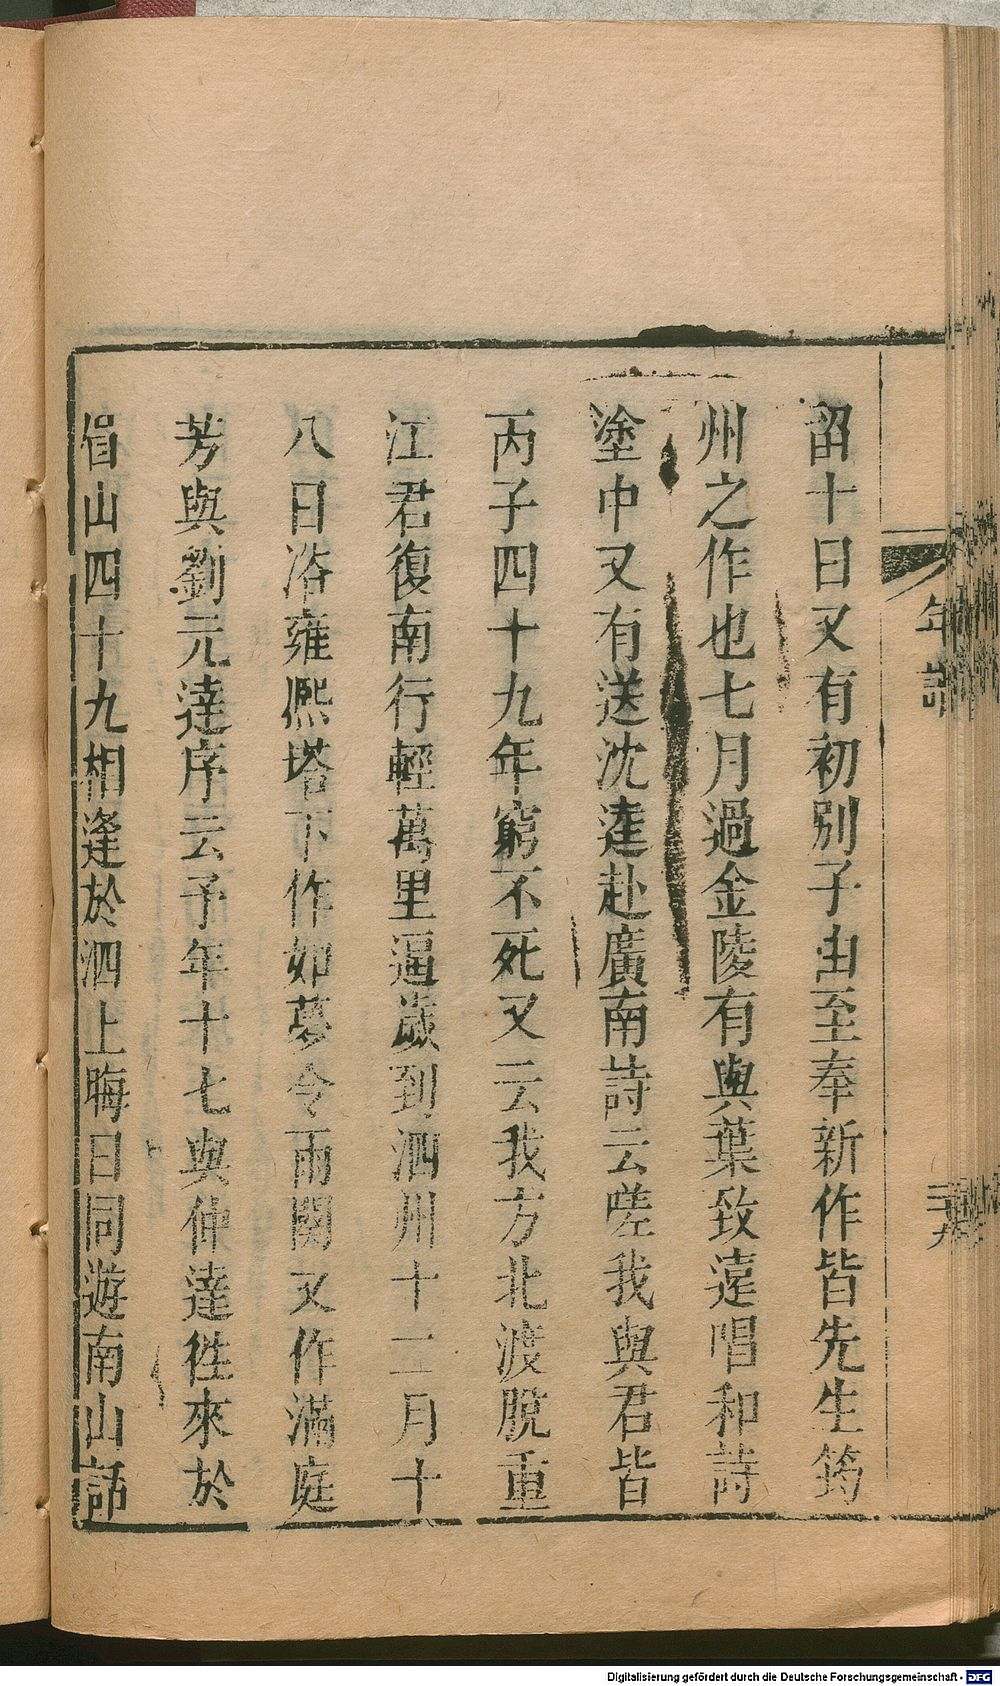 留十日又有初別子由至奉新作皆先生筠
州之作也七月過金陵有與葉致遠唱和詩
塗中又有送沈逵赴廣南詩云嗟我與君皆
丙子四十九年窮不死又云我方北渡脫重
江君復南行輕萬里逼歲到泗州十二月十
八日浴雍熙塔下作如夢令兩闋又作滿庭
芳與劉元達序云予年十七與仲達徃來於
眉山四十九相逢於泗上晦日同遊南山話
年譜
Digitalisierung gefördert durch die Deutsche Forschungsgemeinschaft - DFG